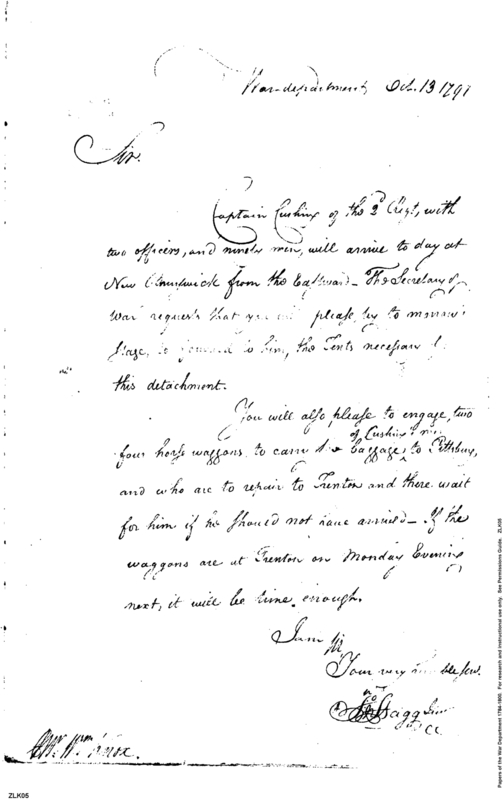 War department Oct. 13 1791
Sir.
Captain Cushing of the 2d Regt, with
two officers, and ninety men, will arrive to day at
New Brunswick from the Eastward – The Secretary of
War requests that you will please, by to morrow's
Stage, to forward to him, the Tents necessary for
this detachment.
You will also, please to engage, two
of Cushing's
four horse waggons to carry the baggage to Pittsburg,
and who are to repair to Trenton and there wait
for him if he should not have arrived – If the
waggons are at Trenton on Monday Evening
next, it will be time enough.
I am Sir
Your very humble Serv.
Stagg Junr
Mr. Wm Knox.
ZLK05
Papers of the War Department 1784-1800. For research and instructional use only. See Permissions Guide. ZLK05